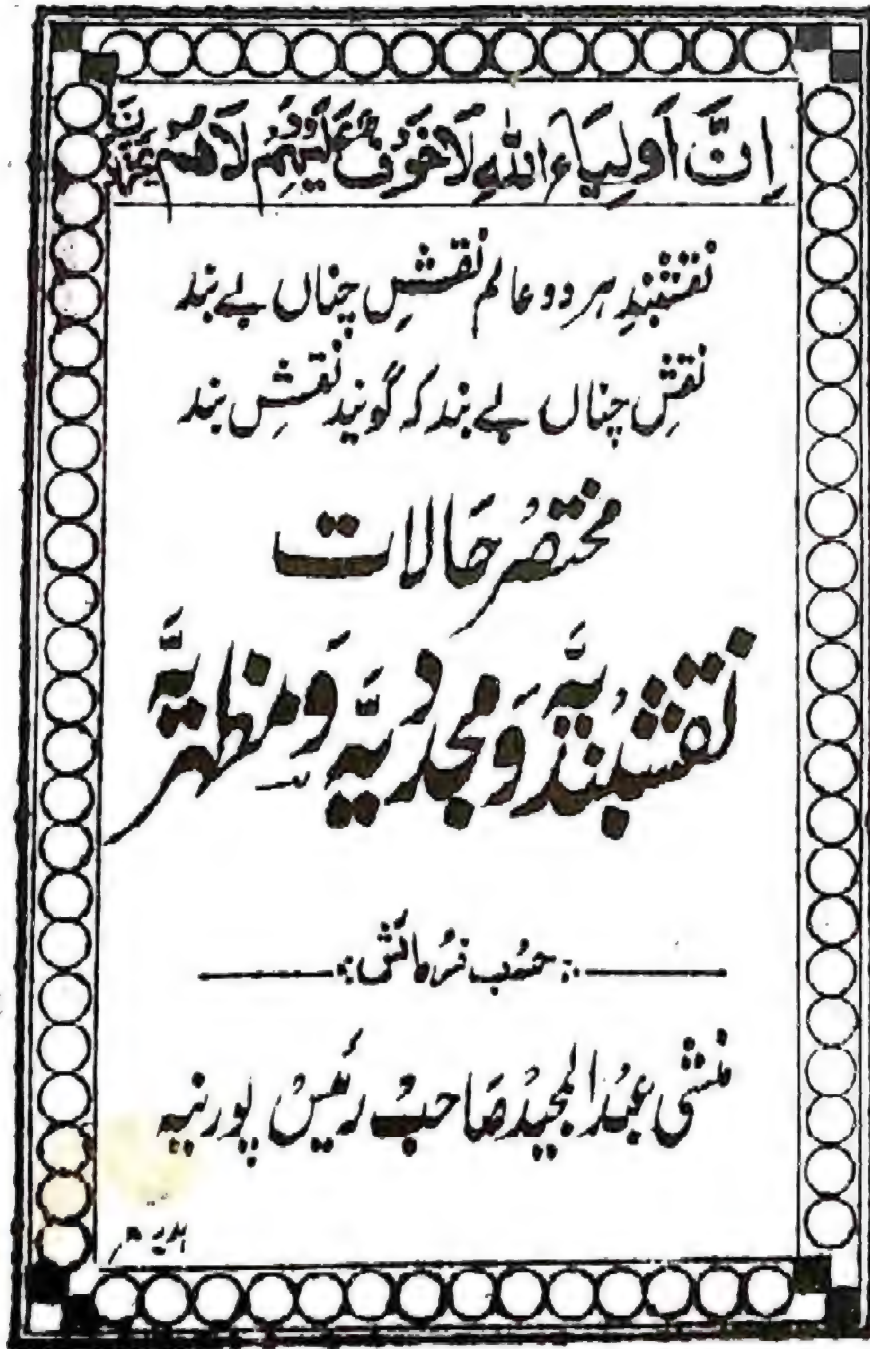 اِنَّ اَولِیَاءَ اللّٰهِ لَا خَوْفٌ عَلَیْهِمْ وَلَا هُمْ
نقشبندِ ہر دو عالم نقشِ چناں بے بند
نقشِ چناں بے بند کہ گویند نقشِ بند
مختصر حالات
نقشبندیَّہ وَ مجددیَّہ وَ مظہریَّہ
حسب فرمائش
منشی عبدالمجید صاحب رئیس پورنیہ